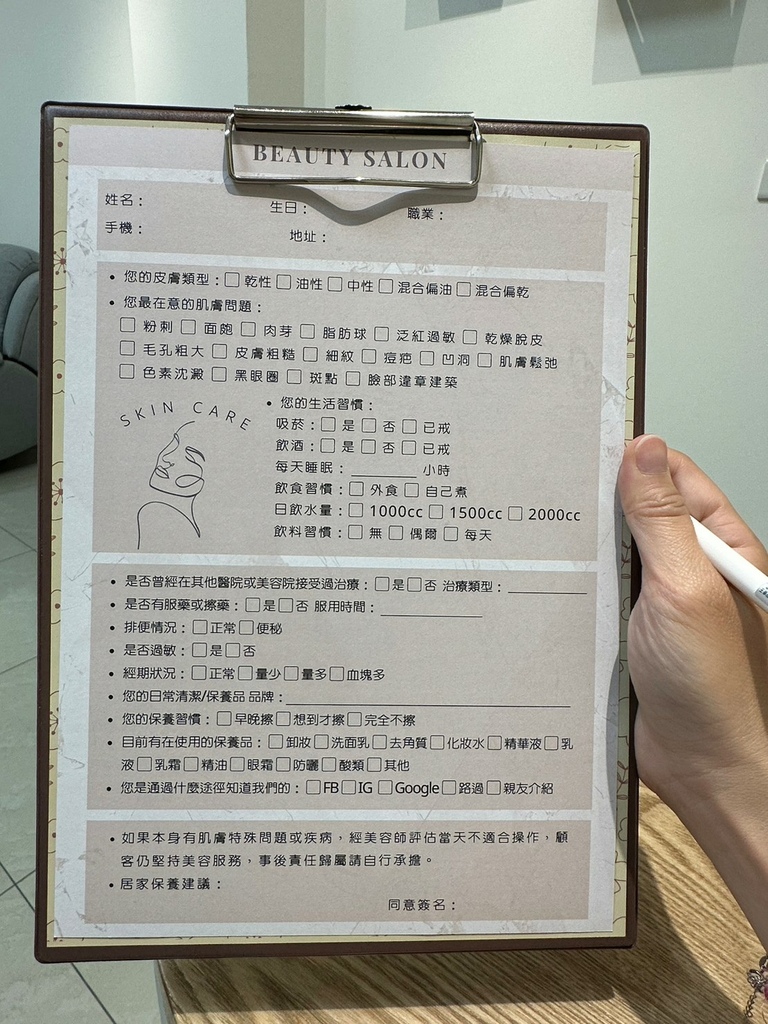 BEAUTY SALON
姓名： 生日： 職業：
手機： 地址：
• 您的皮膚類型：□ 乾性 □ 油性 □ 中性 □ 混合偏油 □ 混合偏乾
• 您最在意的肌膚問題：
□ 粉刺 □ 面皰 □ 肉芽 □ 脂肪球 □ 泛紅過敏 □ 乾燥脫皮
□ 毛孔粗大 □ 皮膚粗糙 □ 細紋 □ 痘疤 □ 凹洞 □ 肌膚鬆弛
□ 色素沈澱 □ 黑眼圈 □ 斑點 □ 臉部違章建築
SKIN CARE
• 您的生活習慣：
吸菸：□ 是 □ 否 □ 已戒
飲酒：□ 是 □ 否 □ 已戒
每天睡眠：______ 小時
飲食習慣：□ 外食 □ 自己煮
日飲水量：□ 1000cc □ 1500cc □ 2000cc
飲料習慣：□ 無 □ 偶爾 □ 每天
• 是否曾經在其他醫院或美容院接受過治療：□是□否 治療類型：________
• 是否有服藥或擦藥：□是□否 服用時間：________
• 排便情況：□正常□便秘
• 是否過敏：□是□否
• 經期狀況：□正常□量少□量多□血塊多
• 您的日常清潔/保養品 品牌：________________
• 您的保養習慣：□早晚擦□想到才擦□完全不擦
• 目前有在使用的保養品：□卸妝□洗面乳□去角質□化妝水□精華液□乳
液□乳霜□精油□眼霜□防曬□酸類□其他
• 您是通過什麼途徑知道我們的：□FB□IG □Google□路過□親友介紹
• 如果本身有肌膚特殊問題或疾病，經美容師評估當天不適合操作，顧
客仍堅持美容服務，事後責任歸屬請自行承擔。
• 居家保養建議：
同意簽名：